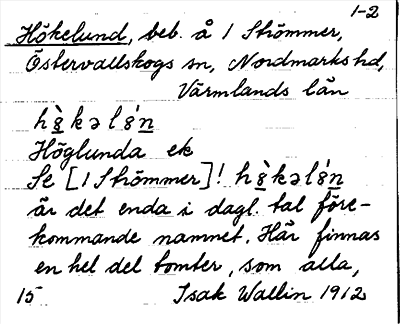 1-2
Hökelund, beb. å 1 Strömmer,
Östervallskogs sn, Nordmarks hd,
Värmlands län
Höglunda ek
Se [1 Strömmer]!
är det enda i dagl. tal före-
kommande namnet. Här finnas
en hel del tomter, som alla,
15 Isak Wallin 1912